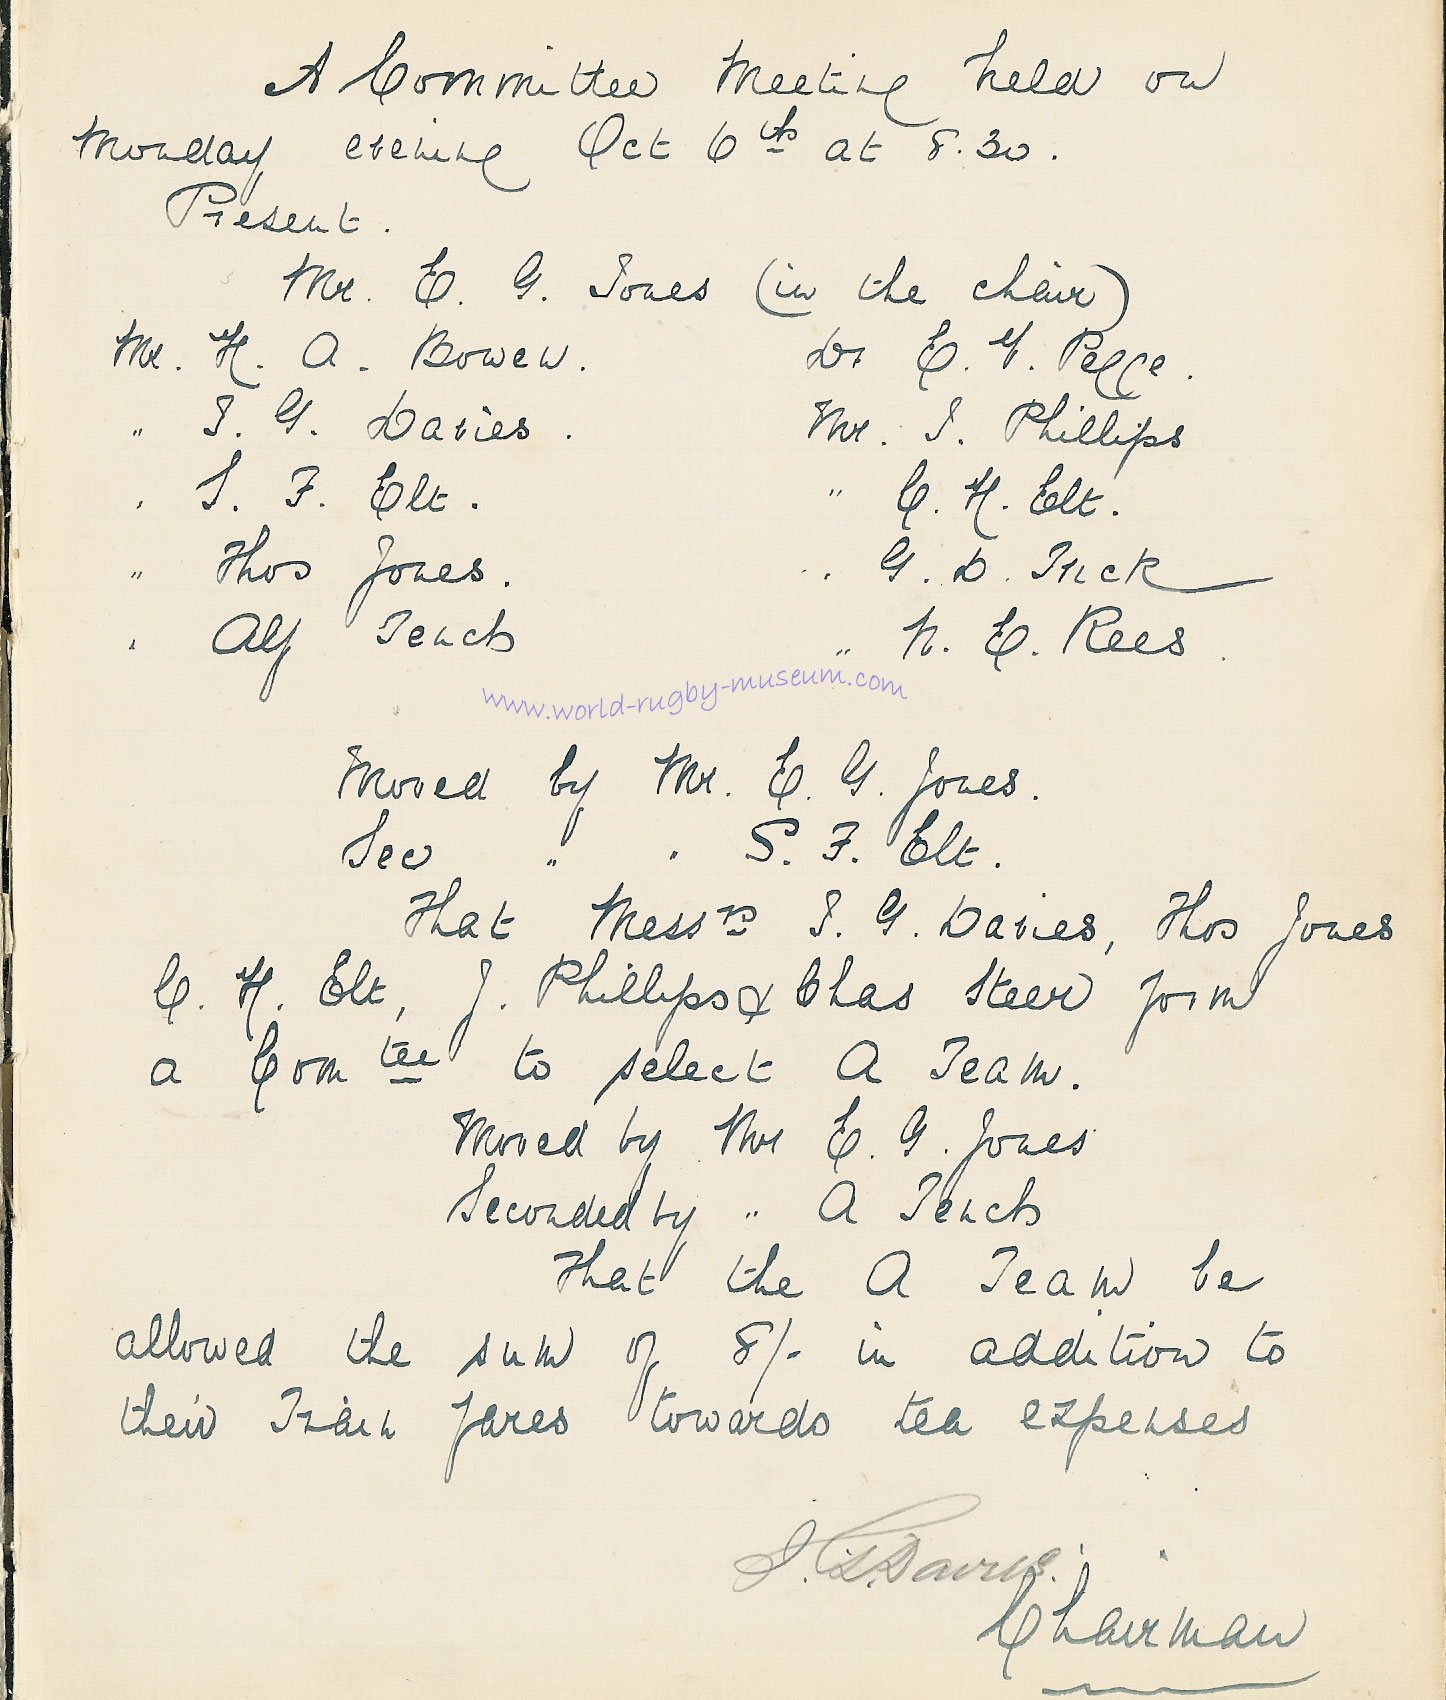 A Committee Meeting held on
Monday evening Oct 6th at 8.30.
Present.
Mr. E. G. Jones (in the chair)
Mr. H. A. Bowen. Dr E. Y. Pegge.
" J. G. Davies. Mr. J. Phillips
" S. F. Elt. " C. H. Elt.
" Thos Jones. " G. D. Trick
" Alf Tench " N. E. Rees.
www.world-rugby-museum.com
Moved by Mr. E. G. Jones.
Sec " " S. F. Elt.
That Messrs J. G. Davies, Thos Jones
C. H. Elt, J. Phillips & Chas Steer form
a Comtee to select A Team.
Moved by Mr E. G. Jones
Seconded by " A Tench
That the A Team be
allowed the sum of 8/- in addition to
their Train fares towards tea expenses
J. G. Davies.
Chairman